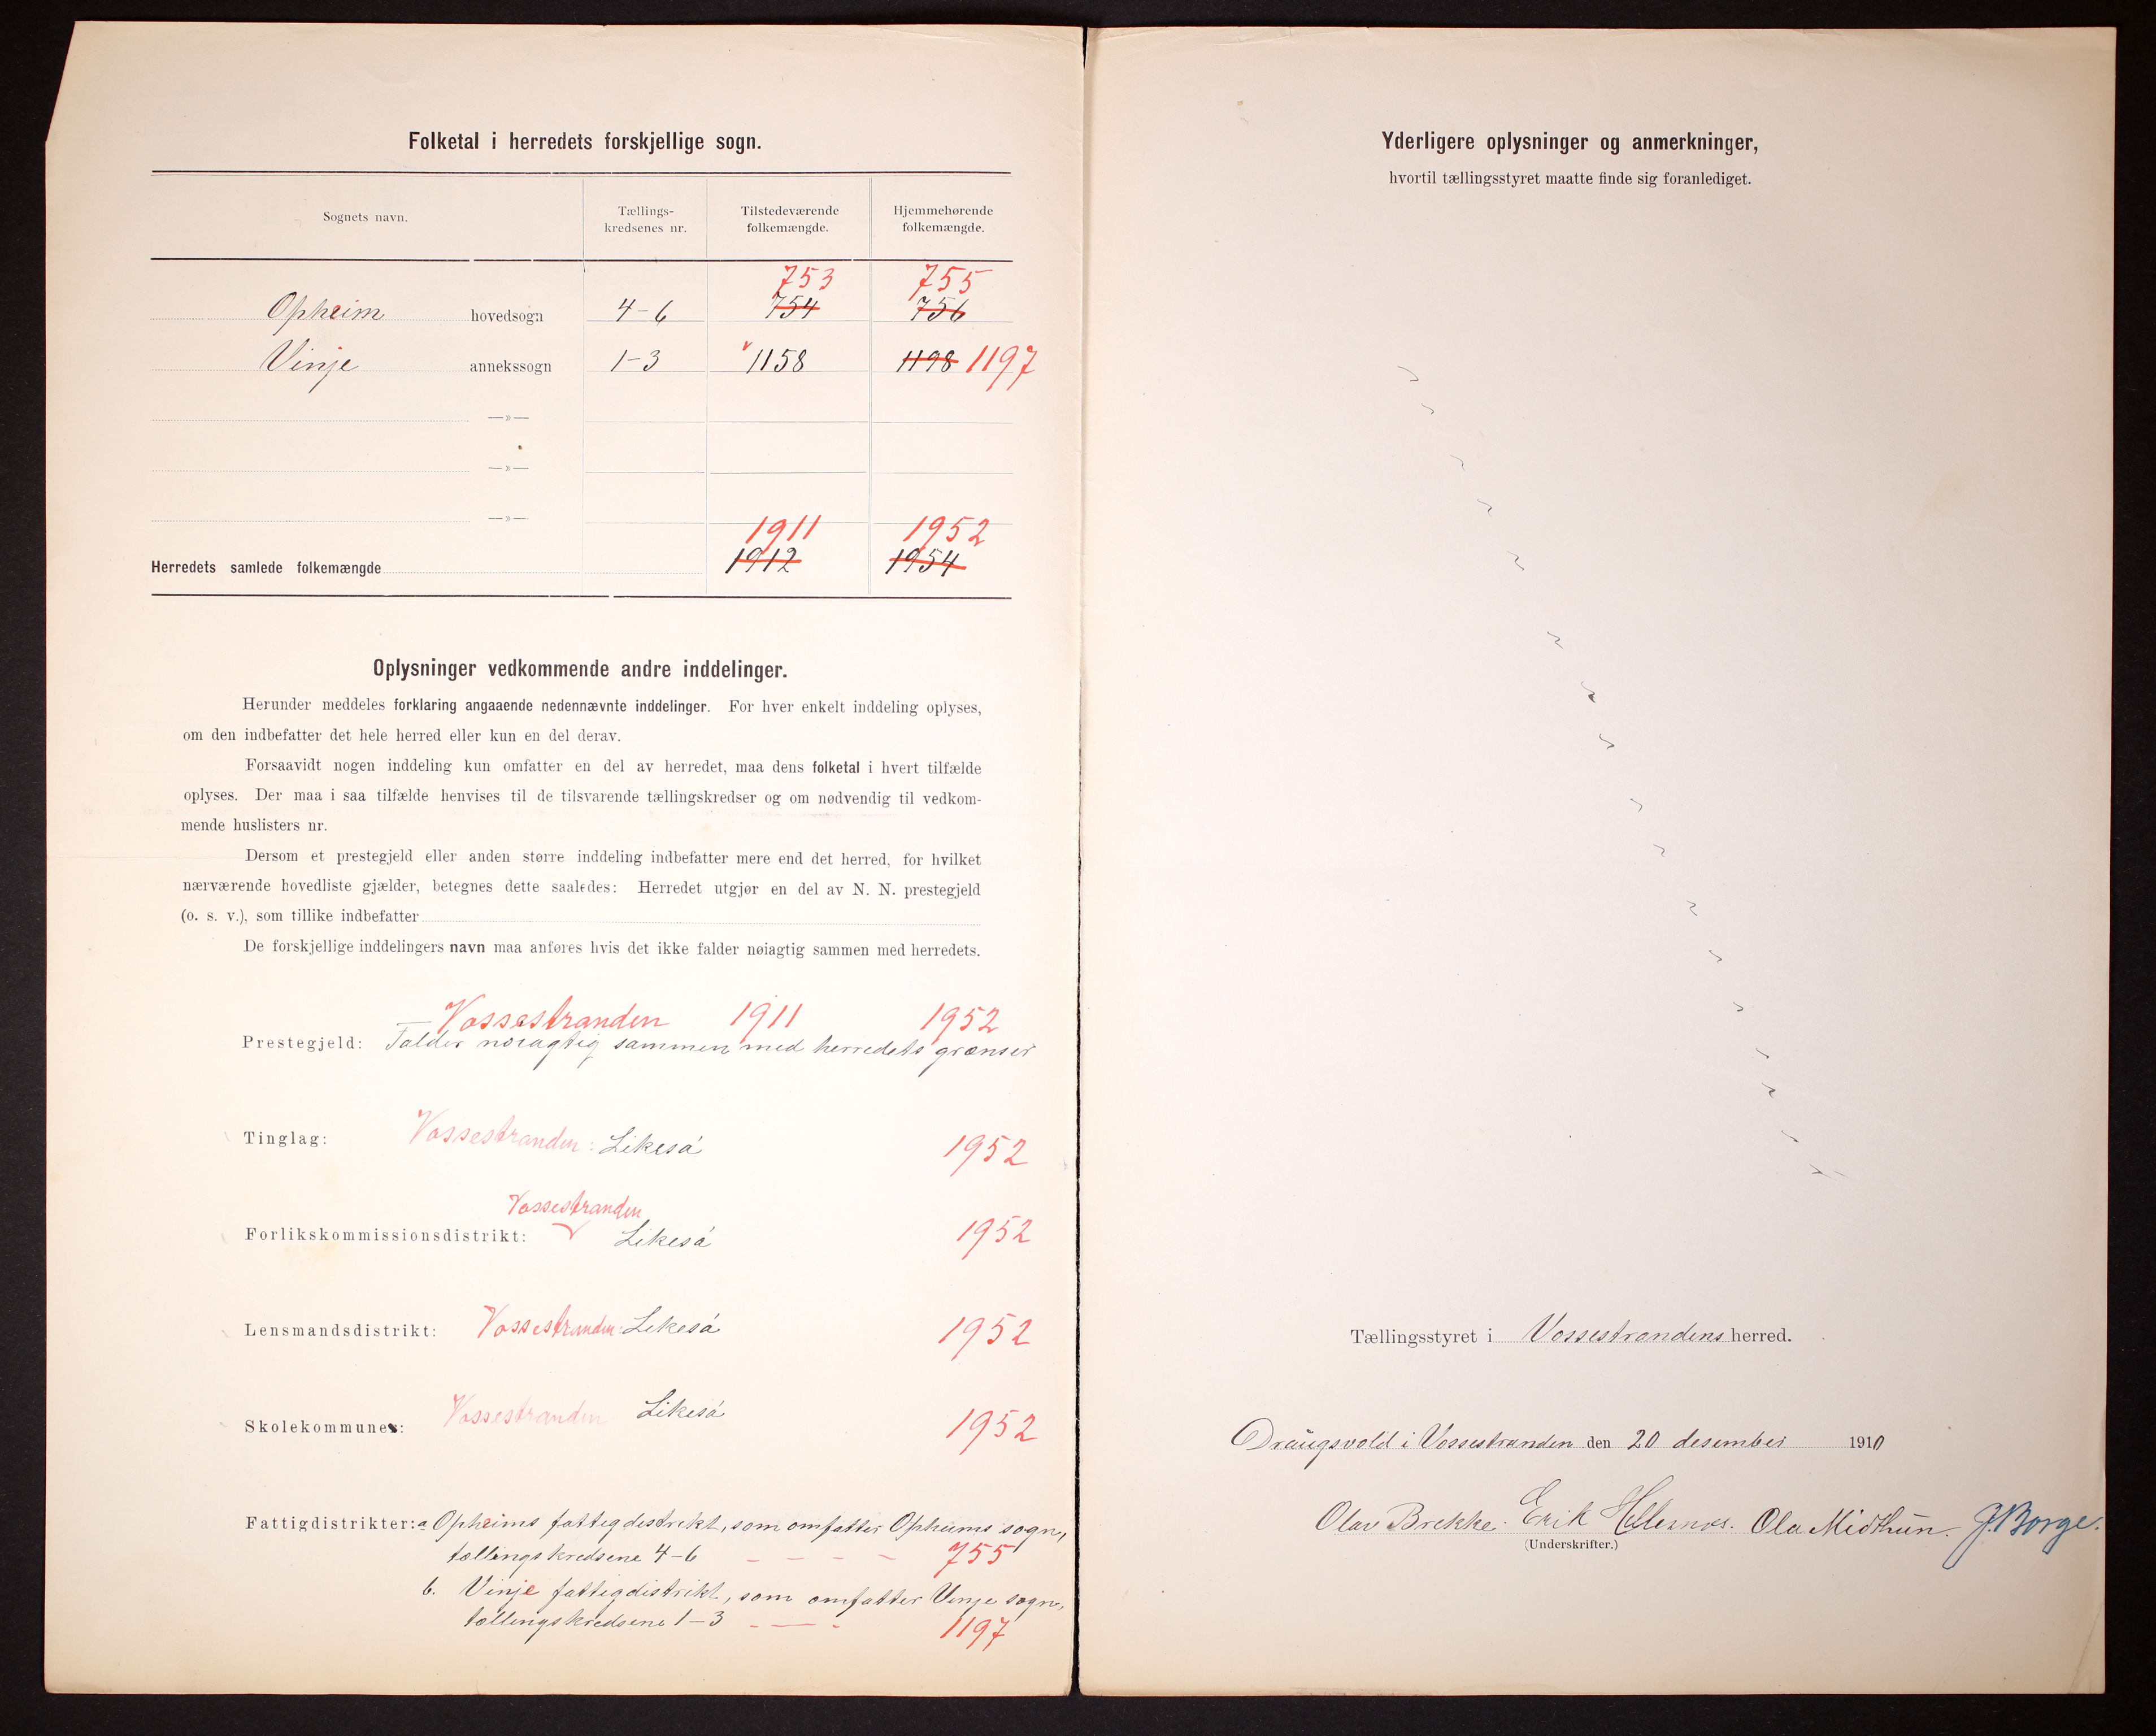 Folketal i herredets forskjellige sogn.
Sognets navn.
Tællings-
kredsenes nr.
Tilstedeværende
folkemængde.
Hjemmehørende
folkemængde.
753 755
Opheim hovedsogn 4-6 754 756
Vinje annekssogn 1-3 1158 1198 1197
—»—
—»—
—»—
1911 1952
Herredets samlede folkemængde 1912 1954
Oplysninger vedkommende andre inddelinger.
Herunder meddeles forklaring angaaende nedennævnte inddelinger. For hver enkelt inddeling oplyses,
om den indbefatter det hele herred eller kun en del derav.
Forsaavidt nogen inddeling kun omfatter en del av herredet, maa dens folketal i hvert tilfælde
oplyses. Der maa i saa tilfælde henvises til de tilsvarende tællingskredser og om nødvendig til vedkom-
mende huslisters nr.
Dersom et prestegjeld eller anden større inddeling indbefatter mere end det herred, for hvilket
nærværende hovedliste gjælder, betegnes dette saaledes: Herredet utgjør en del av N. N. prestegjeld
(o. s. v.), som tillike indbefatter
De forskjellige inddelingers navn maa anføres hvis det ikke falder nøiagtig sammen med herredets.
Vossestranden 1911 1952
Prestegjeld: Falder nøiagtig sammen med herredets grænser
Tinglag: Vossestranden: Likesá 1952
Vossestranden
Forlikskommissionsdistrikt: Likesá 1952
Lensmandsdistrikt: Vossestranden: Likesá 1952
Skolekommuner: Vossestranden Likesá 1952
Fattigdistrikter: a Opheims fattigdistrikt, som omfatter Opheims sogn,
tællingskredsene 4-6 - - - - 755
b. Vinje fattigdistrikt, som omfatter Vinje sogn,
tællingskredsene 1-3 - — - 1197
Yderligere oplysninger og anmerkninger,
hvortil tællingsstyret maatte finde sig foranlediget.
Tællingsstyret i Vossestrandens herred.
Draugsvold i Vossestranden den 20 desember 1910
Olav Brekke. Erik Hellernes. Ola Midthun. J. Borge.
(Underskrifter.)